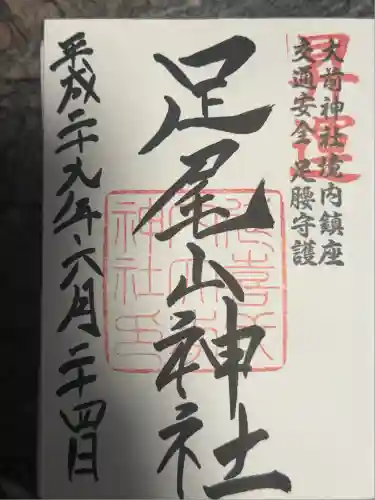 大前神社境内鎮座
交通安全 足腰守護
足尾山神社
平成二十九年六月二十四日